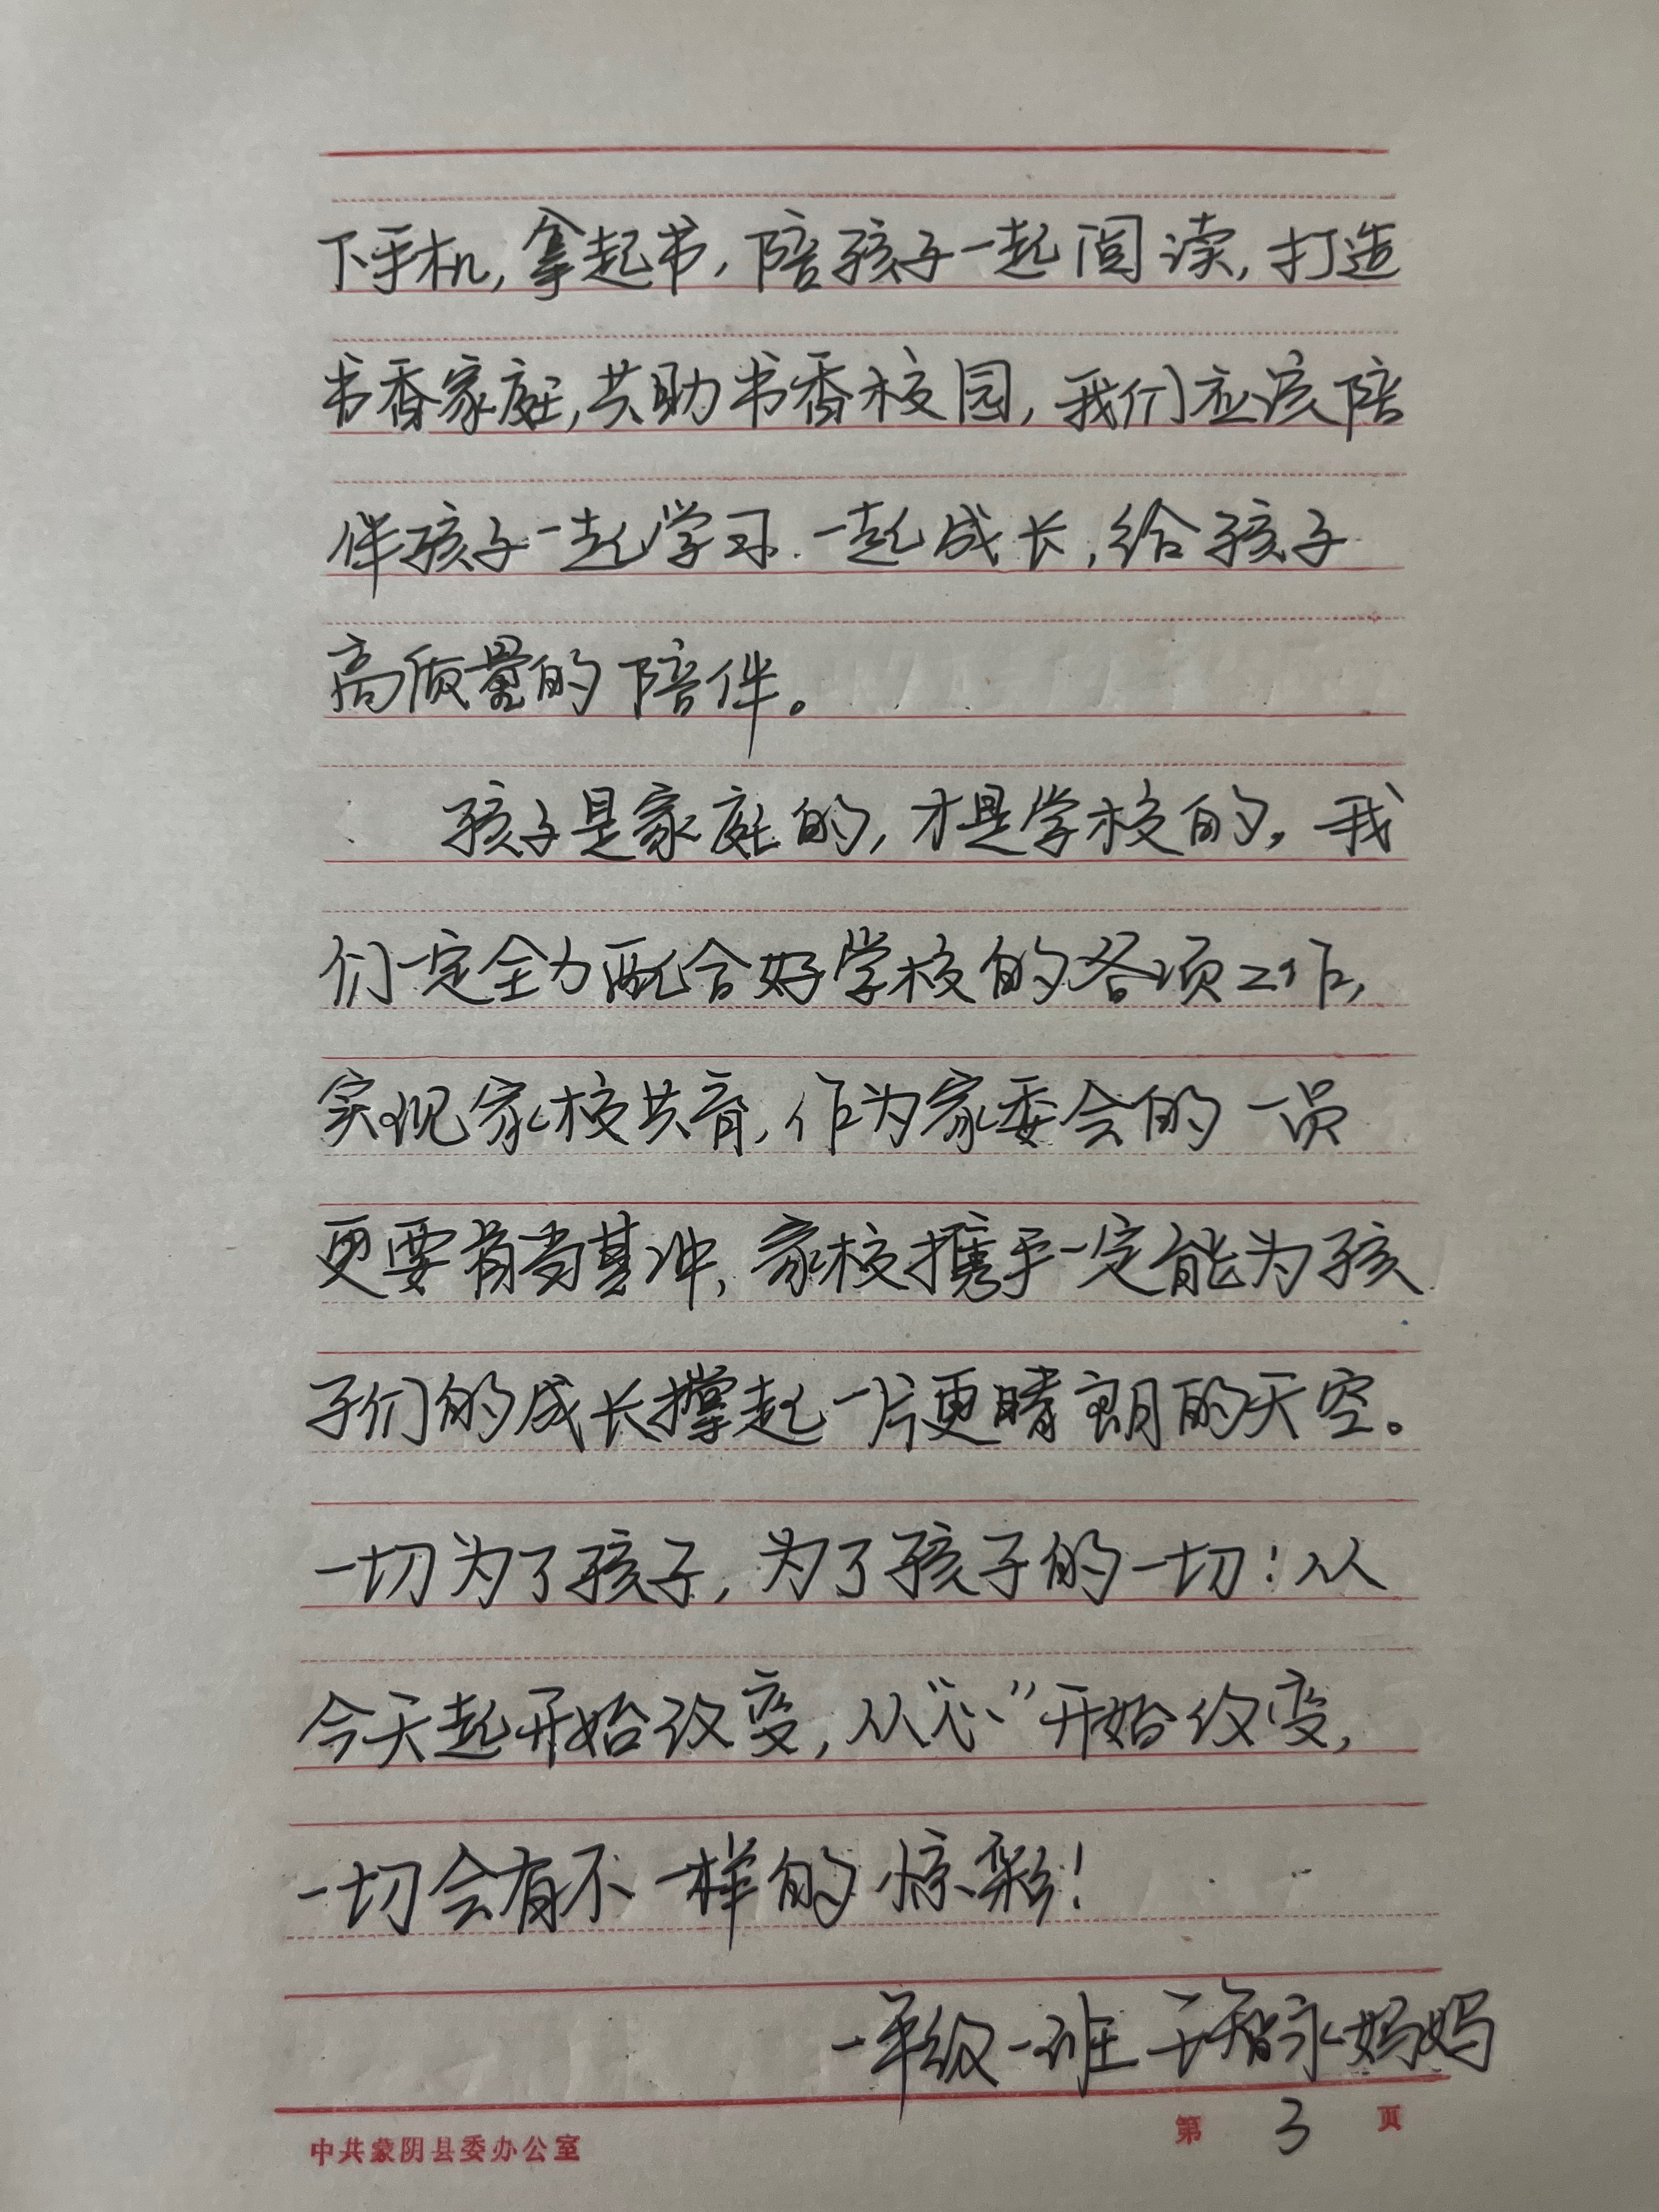 下手机，拿起书，陪孩子一起阅读，打造
书香家庭，共助书香校园，我们应该陪
伴孩子一起学习.一起成长，给孩子
高质量的陪伴。
孩子是家庭的，才是学校的。我
们一定全力配合好学校的各项工作，
实现家校共育，作为家委会的一员
更要首当其冲，家校携手一定能为孩
子们的成长撑起一片更晴朗的天空。
一切为了孩子，为了孩子的一切！从
今天起开始改变，从“心”开始改变，
一切会有不一样的惊彩！
一年级一班 妈妈
中共蒙阴县委办公室
第 3 页